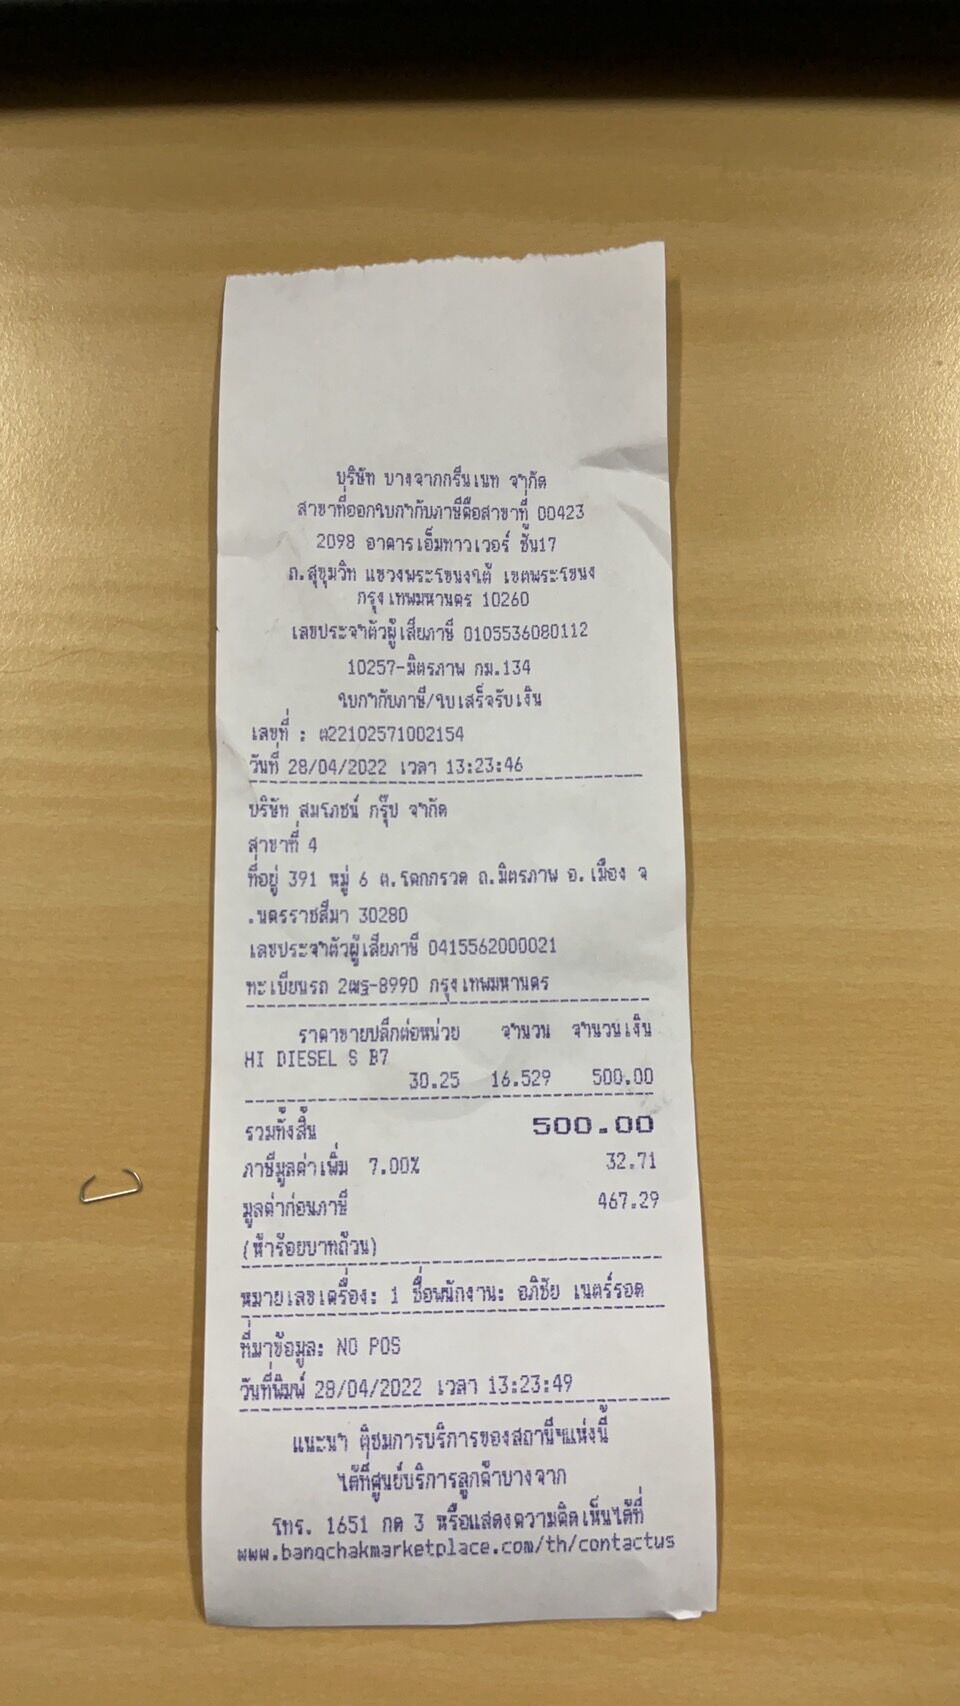 บริษัท บางจากกรีนเนท จำกัด
สาขาที่ออกใบกำกับภาษีคือสาขาที่ 00423
2098 อาคารเอ็มทาวเวอร์ ชั้น17
ถ.สุขุมวิท แขวงพระโขนงใต้ เขตพระโขนง
กรุงเทพมหานคร 10260
เลขประจำตัวผู้เสียภาษี 0105536080112
10257-มิตรภาพ กม.134
ใบกำกับภาษี/ใบเสร็จรับเงิน
เลขที่ : ต22102571002154
วันที่ 28/04/2022 เวลา 13:23:46
บริษัท สมโภชน์ กรุ๊ป จำกัด
สาขาที่ 4
ที่อยู่ 391 หมู่ 6 ต.โคกกรวด ถ.มิตรภาพ อ.เมือง จ
.นครราชสีมา 30280
เลขประจำตัวผู้เสียภาษี 0415562000021
ทะเบียนรถ 2ฒรู-8990 กรุงเทพมหานคร
ราคาขายปลีกต่อหน่วย จำนวน จำนวนเงิน
HI DIESEL S B7
30.25 16.529 500.00
รวมทั้งสิ้น 500.00
ภาษีมูลค่าเพิ่ม 7.00% 32.71
มูลค่าก่อนภาษี 467.29
(ห้าร้อยบาทถ้วน)
หมายเลขเครื่อง: 1 ชื่อพนักงาน: อภิชัย เนตร์รอด
ที่มาข้อมูล: NO POS
วันที่พิมพ์ 28/04/2022 เวลา 13:23:49
แนะนำ ติชมการบริการของสถานีฯแห่งนี้
ได้ที่ศูนย์บริการลูกค้าบางจาก
โทร. 1651 กด 3 หรือแสดงความคิดเห็นได้ที่
www.bangchakmarketplace.com/th/contactus